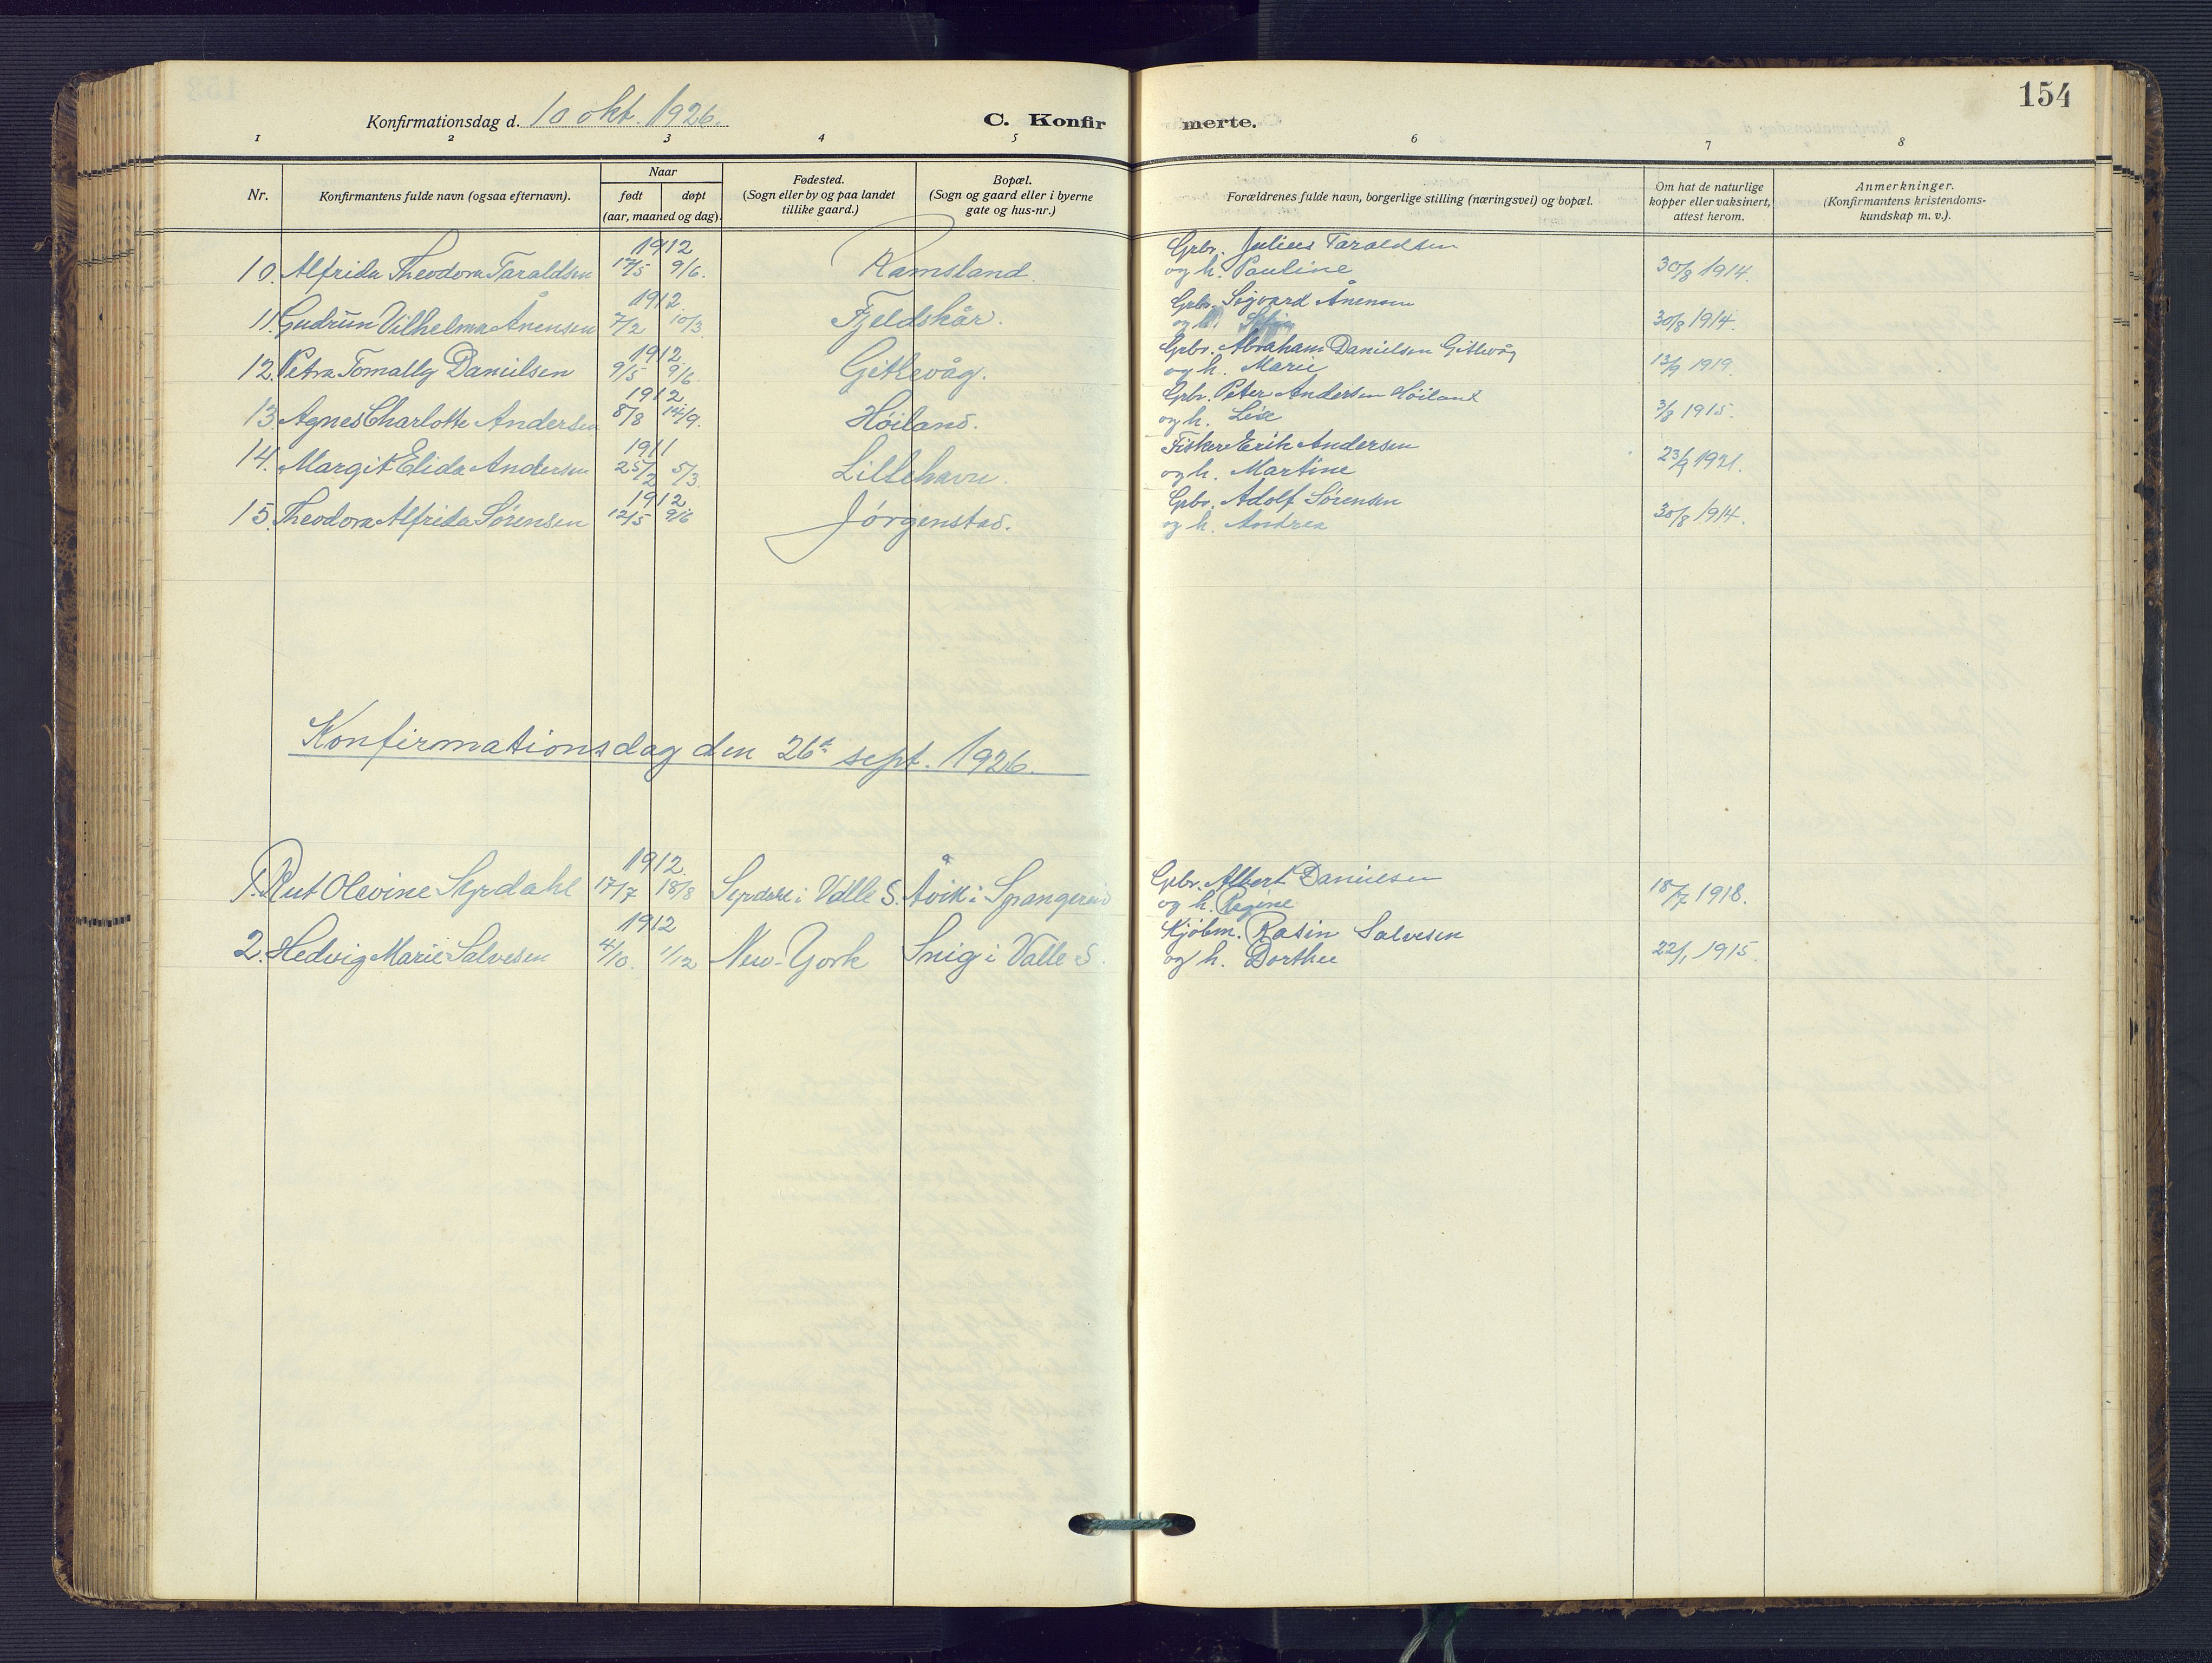 154
Konfirmationsdag d. 10 okt. 1926. C. Konfir merte.
1 2 3 4 5 6 7 8
Nr. Konfirmantens fulde navn (ogsaa efternavn). Naar født døpt (aar, maaned og dag). Fødested. (Sogn eller by og paa landet tillike gaard.) Bopæl. (Sogn og gaard eller i byerne gate og hus-nr.) Forældrenes fulde navn, borgerlige stilling (næringsvei) og bopæl. Om hat de naturlige kopper eller vaksinert, attest herom. Anmerkninger. (Konfirmantens kristendoms- kundskap m. v.).
1912 Grbr. Julius Taraldsen
10. Alfrida Theodora Taraldsen 17/5 9/6. Ramsland. og h. Pauline 30/8 1914.
1912 Grbr. Sigvard Ånensen
11. Gudrun Vilhelma Ånensen 7/2 10/3 Fjeldskår. og h. 30/8 1914.
1912 Grbr. Abraham Danielsen Gitlevåg
12. Petra Tomally Danielsen 9/5 9/6. Gitlevåg. og h. Marie 13/9 1919.
1912 Grbr. Peter Andersen Höiland
13. Agnes Charlotte Andersen 8/8 14/9. Höiland. og h. Lise 3/8 1915.
1911 Fisker Erik Andersen
14. Margit Elida Andersen 25/2 5/3. Lillehavn. og h. Martine 23/9 1921.
1912 Grbr. Adolf Sörensen
15. Theodora Alfrida Sörensen 12/5 9/6 Jörgenstad. og h. Andrea 30/8 1914.
Konfirmationsdag den 26de sept. 1926.
1912. Grbr. Albert Danielsen
1. Rut Olevine Syrdahl 17/7 18/8 Syrdahl i Valle S. Åvik i Spangereid og h. Regine 18/7 1918.
1912 Kjöbm. Rasin Salvesen
2. Hedvig Marie Salvesen 4/10. 1/12 New-York Snig i Valle S. og h. Dorthee 22/1 1915.